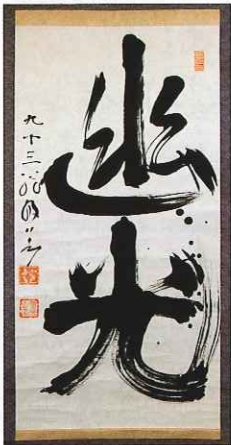 幽光
九十三翁